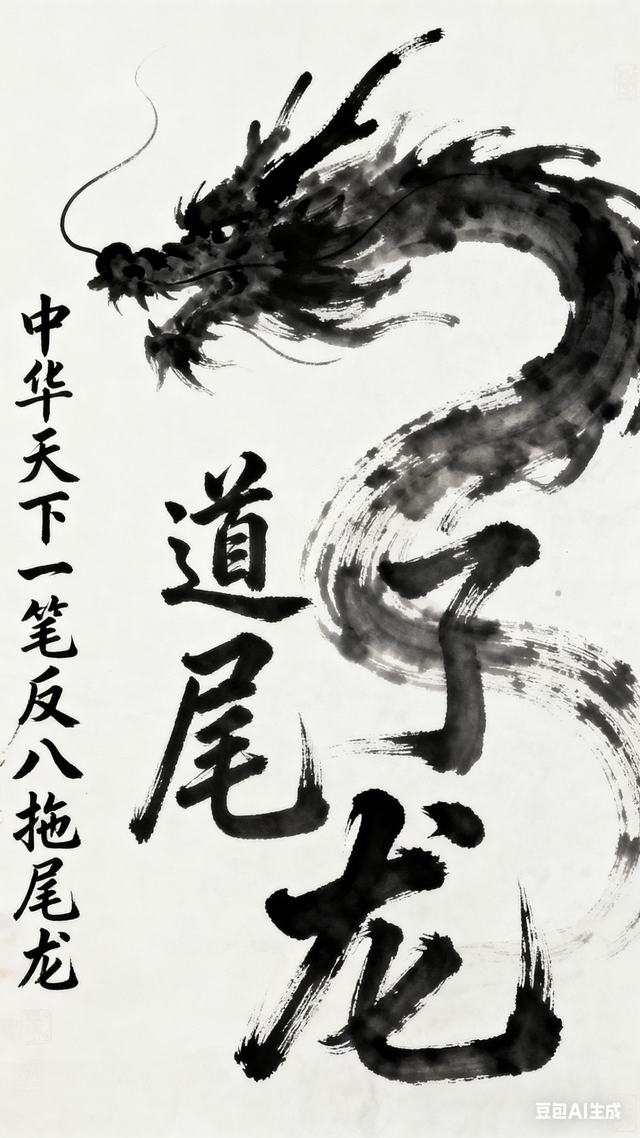 中华天下一笔反八拖尾龙
道尾
了龙
豆包AI生成